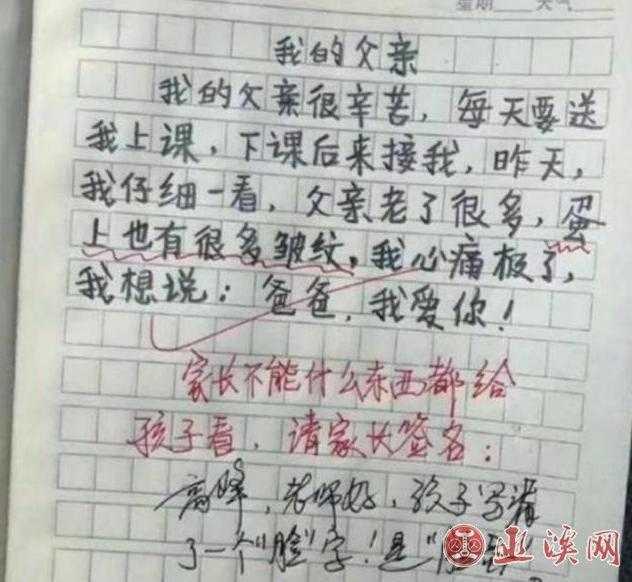 星期 天气
我的父亲
我的父亲很辛苦，每天要送
我上课，下课后来接我，昨天，
我仔细一看，父亲老了很多，蛋
上也有很多皱纹，我心痛极了，
我想说：爸爸，我爱你！
家长不能什么东西都给
孩子看，请家长签名：
高峰，老师好，孩子写错
了一个"脸"字！是"脸
巫溪网